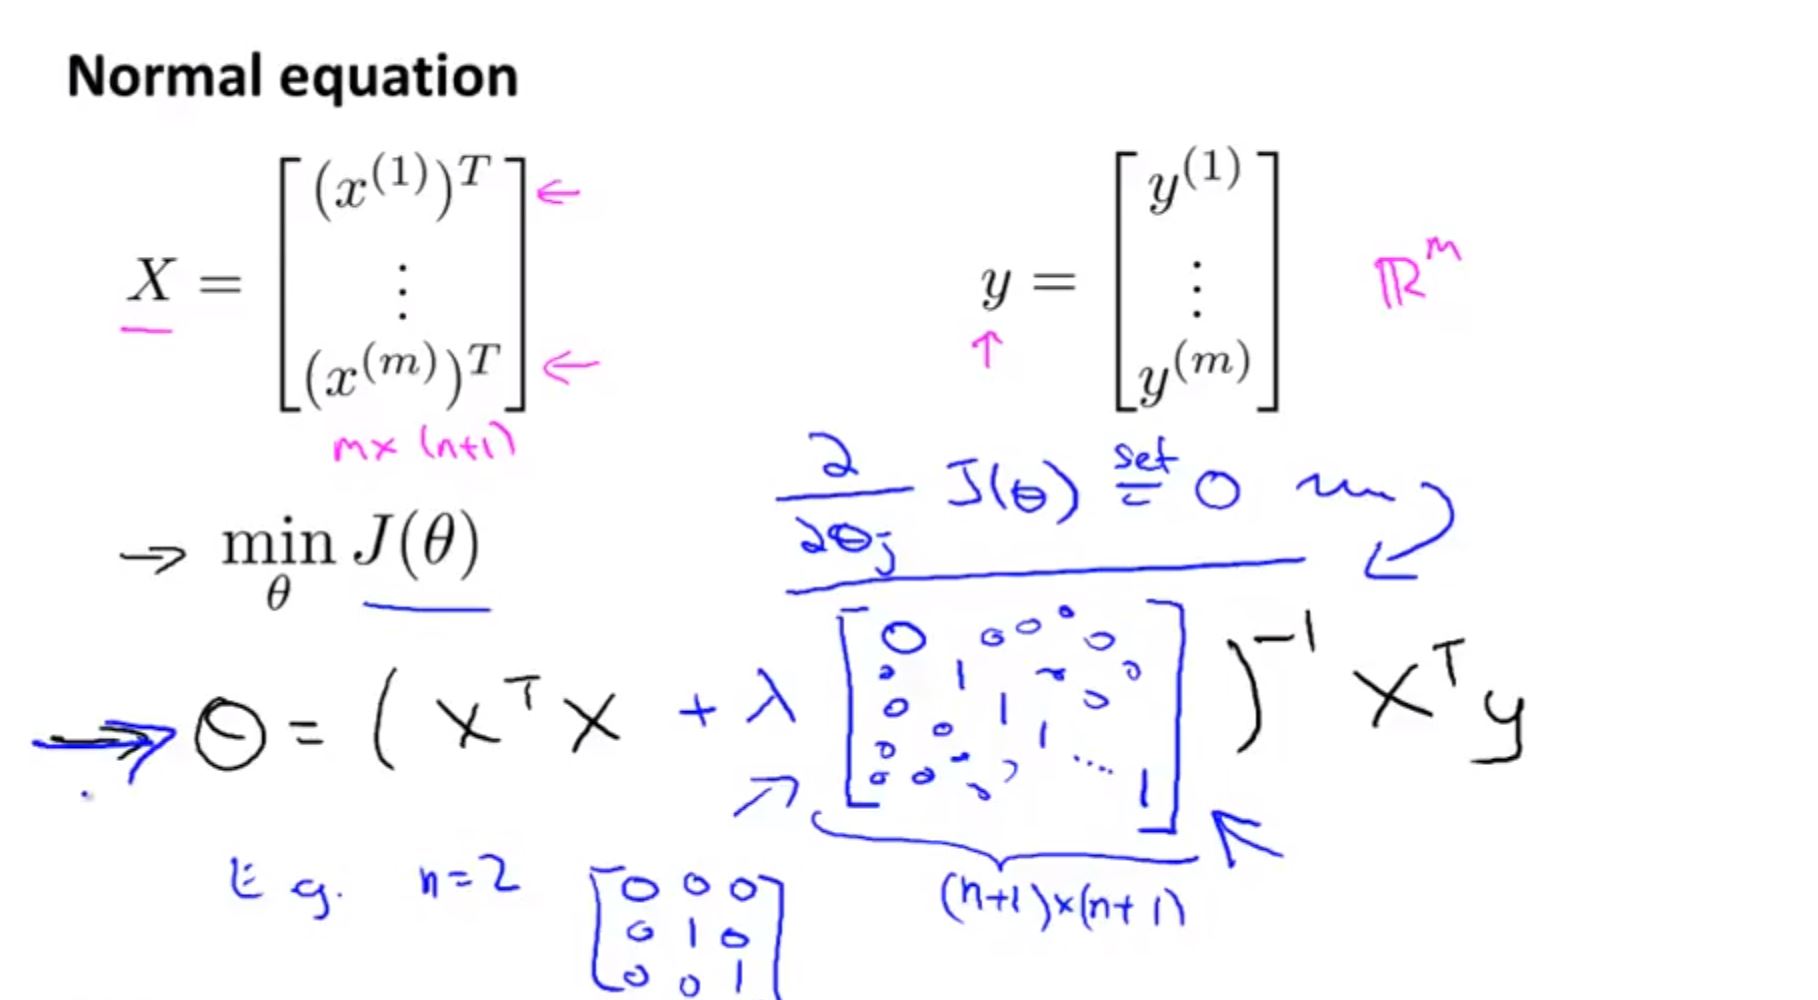 Normal equation
X = [ (x^(1))^T ⋮ (x^(m))^T ] ← ←
m × (n+1)
y = [ y^(1) ⋮ y^(m) ] ℝ^m
↑
∂/∂θj J(θ) set = 0
→ min θ J(θ)
→ θ = ( X^T X + λ [ 0 0 0 0 0 0 1 0 0 1 0 0 1 0 0 0 ... 1 ] )^-1 X^T y
(n+1)×(n+1)
E.g. n=2 [ 0 0 0
0 1 0
0 0 1 ]